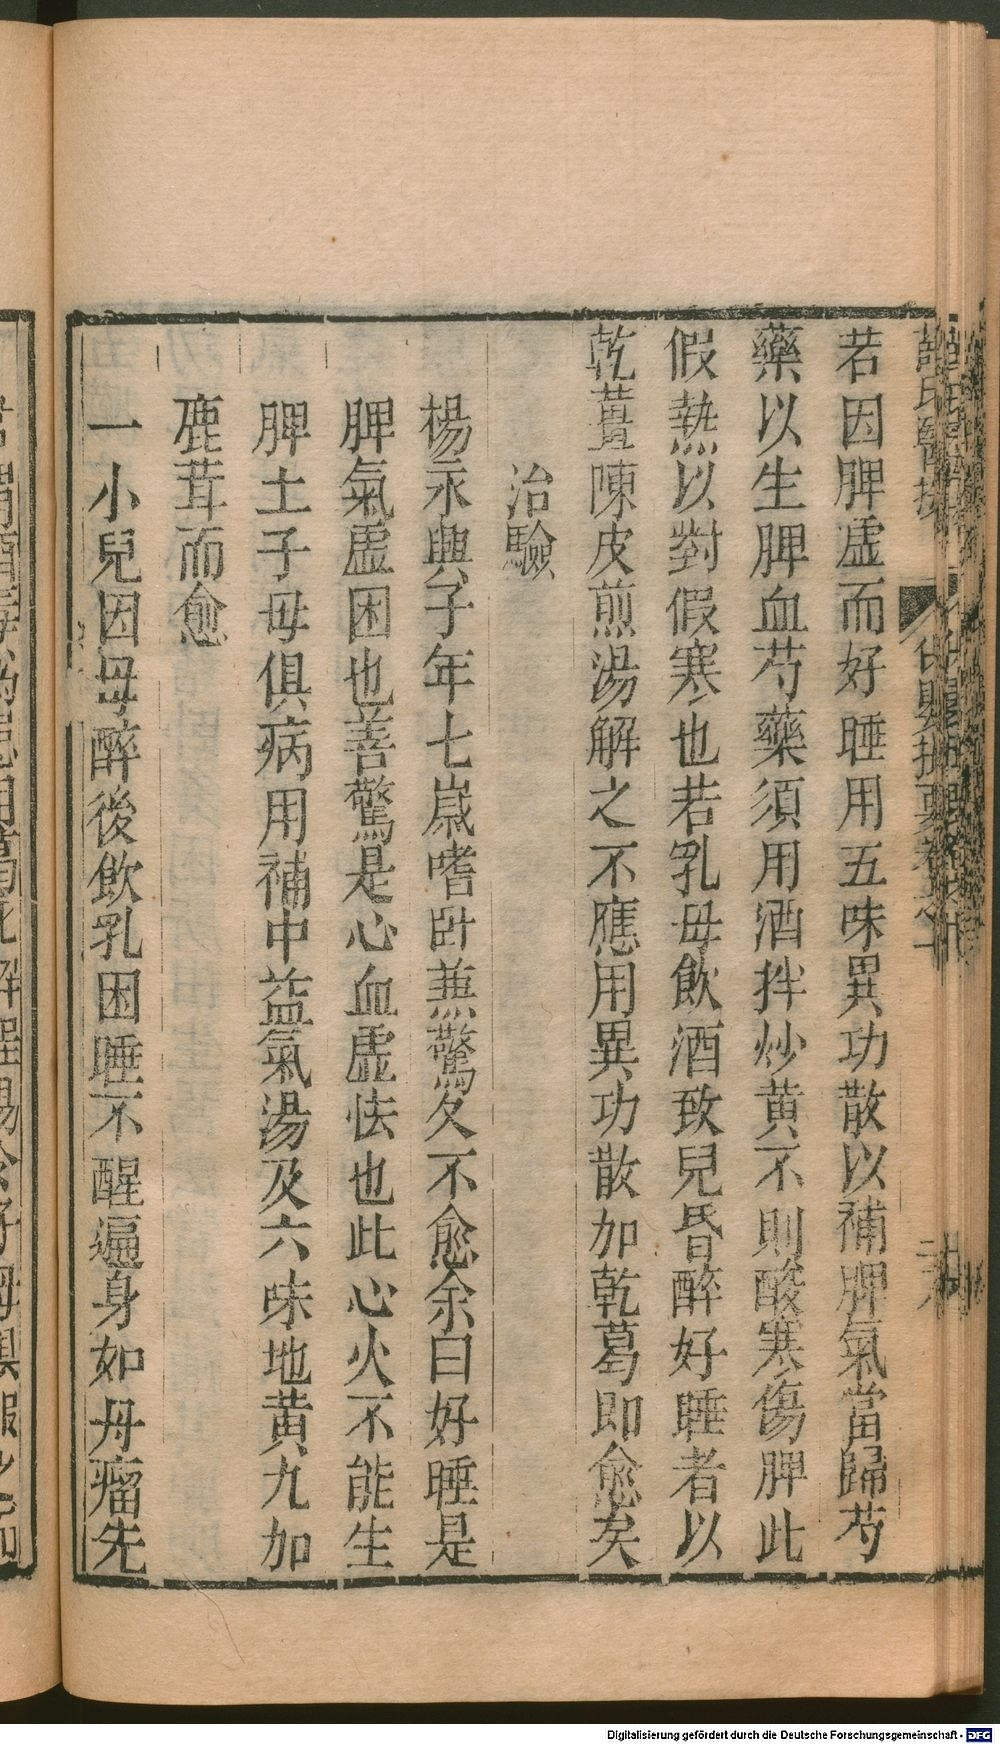 若因脾虛而好睡用五味異功散以補脾氣當歸芍
藥以生脾血芍藥須用酒拌炒黄不則酸寒傷脾此
假熱以對假寒也若乳母飲酒致兒昏醉好睡者以
乾葛陳皮煎湯解之不應用異功散加乾葛即愈矣
治驗
楊永興子年七嵗嗜卧兼驚久不愈余曰好睡是
脾氣虛困也善驚是心血虛怯也此心火不能生
脾土子母俱病用補中益氣湯及六味地黄九加
鹿茸而愈
一小兒因母醉後飲乳困睡不醒遍身如丹瘤先
Digitalisierung gefördert durch die Deutsche Forschungsgemeinschaft - DFG